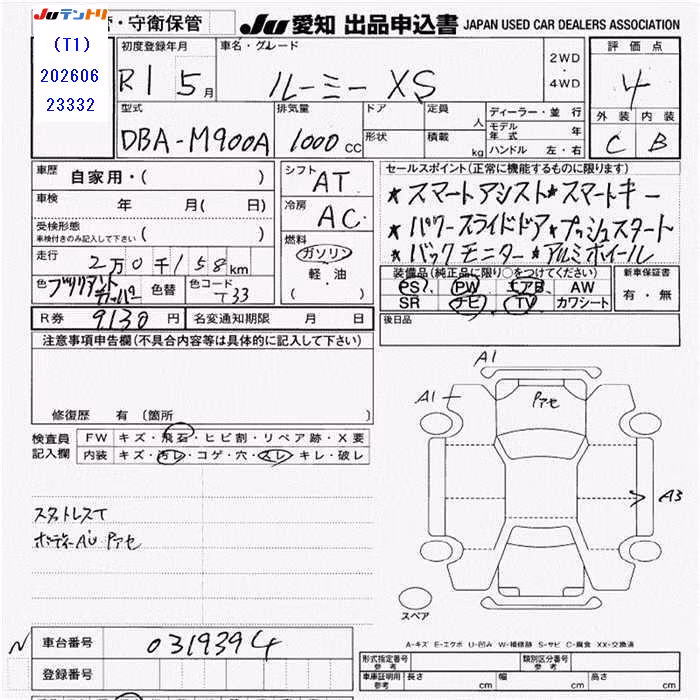 JUテントリ
・守衛保管
JU 愛知 出品申込書 JAPAN USED CAR DEALERS ASSOCIATION
(T1)
202606
23332
初度登録年月 車名・グレード 2WD・4WD 評価点
R1 5月 ルーミー XS 4
型式 排気量 ドア 定員 人 ディーラー・並行 外装 内装
DBA-M900A 1000 CC 形状 積載 kg モデル年式 年 C B
ハンドル 左・右
車歴 自家用・( ) シフト AT セールスポイント(正常に機能するものに限ります)
車検 年 月( 日) 冷房 AC ★スマートアシスト★スマートキー
受検形態 車検付きのみ記入して下さい ( ) ★パワースライドドア★プッシュスタート
燃料 ガソリン 軽・油 ( ) ★バックモニター★アルミホイール
走行 2万0千158km 装備品(純正品に限り○をつけてください) 新車保証書
色 色替 色コード T33 PS PW エアB AW 有・無
SR ナビ TV カワシート
R券 9130円 名変通知期限 月 日 後日品
注意事項申告欄(不具合内容等は具体的に記入して下さい)
修復歴 有(箇所 )
検査員 FW キズ・飛石・ヒビ割・リペア跡・X要
記入欄 内装 キズ・汚レ・コゲ・穴・スレ・キレ・破レ
A1
A1
Pアセ
A3
スタットレスT
ボディーAU Pアセ
スペア
A-キズ E-エクボ U-凹み W-補修跡 S-サビ C-腐食 XX-交換済
N 車台番号 0319394
登録番号
形式指定番号 参考 類別区分番号 参考
車庫証明用 参考 長さ cm 幅 cm 高さ cm